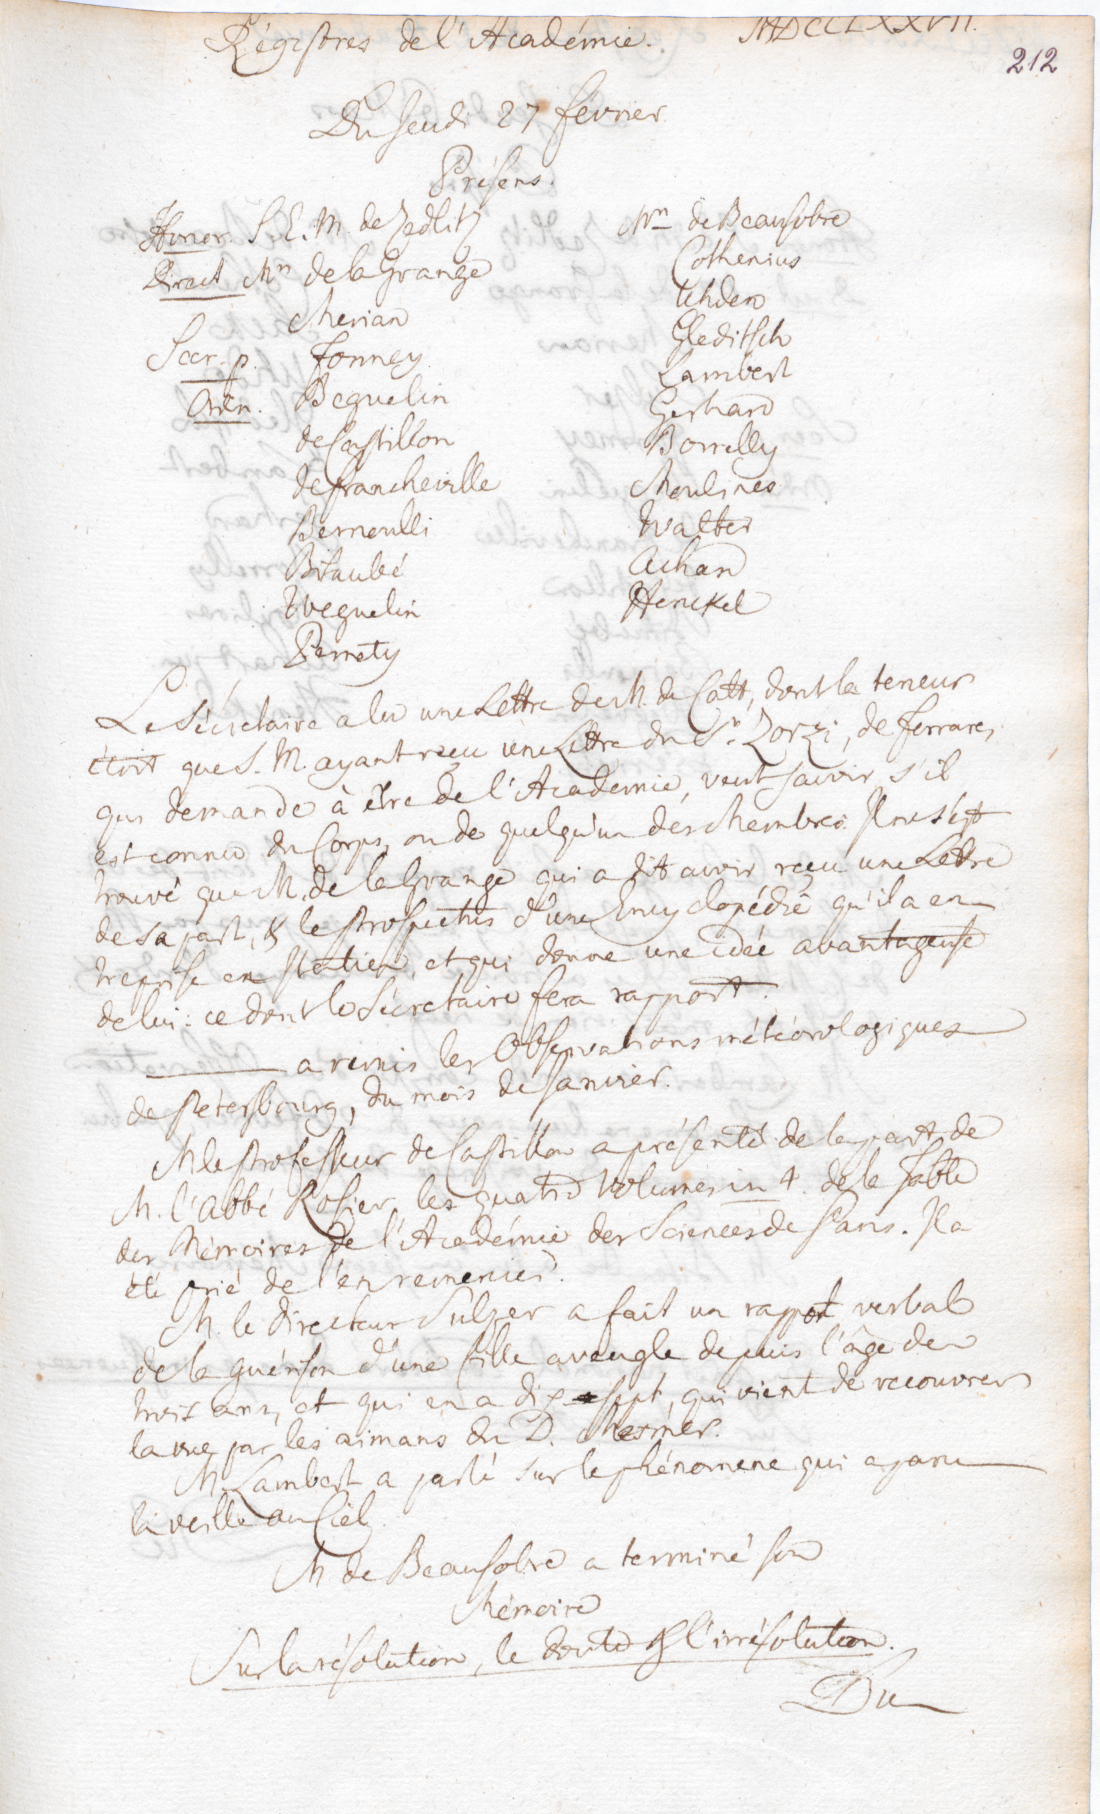 Régistres de l'Académie. MDCCLXXVII.
212
Du Jeudi 27 février
Présens.
Honor. S. E. M. de Zedlitz
Direct Mrs de la Grange
Merian
Secr. p. Formey
Ordin. Beguelin
de Castillon
de francheville
Bernoulli
Bitaubé
Weguelin
Pernety
Mrs de Beausobre
Cothenius
Uhden
Gleditsch
Lambert
Gerhard
Borrelly
Moulines
Walter
Achard
Henckel
Le Sécrétaire a lu une Lettre de M. de Catt, dont la teneur
étoit que S. M. ayant reçu une Lettre du Sr. Zorzi, de ferrare,
qui demande à être de l'Academie, veut savoir s'il
est connu du Corps, ou de quelqu'un des Membres. Il ne s'est
trouvé que M. de la Grange qui a dit avoir reçu une Lettre
de sa part, & le Prospectus d'une Encyclopédie qu'il a en
treprise en Italien, et qui donne une idée avantageuse
de lui: ce dont le Sécretaire fera rapport.
——— a remis les Observations météorologiques
de Petersbourg, du mois de Janvier.
M. le Professeur de Castillon a présenté de la part de
M. l'Abbé Rosier, les quatre Volumes in 4. de la Table
des Mémoires de l'Académie des Sciences de Paris. Il a
été prié de l'en remercier.
M. le Directeur Sulzer a fait un rapport verbal
de la guérison d'une fille aveugle depuis l'âge de
trois ans, et qui en a dix-sept, qui vient de recouvrer
la vue par les aimans du D. Mesmer.
M. Lambert a parlé sur le phénomene qui a paru
la veille au Ciel.
M. de Beausobre a terminé son
Mémoire
Sur la résolution, le doute & l'irrésolution.
Du